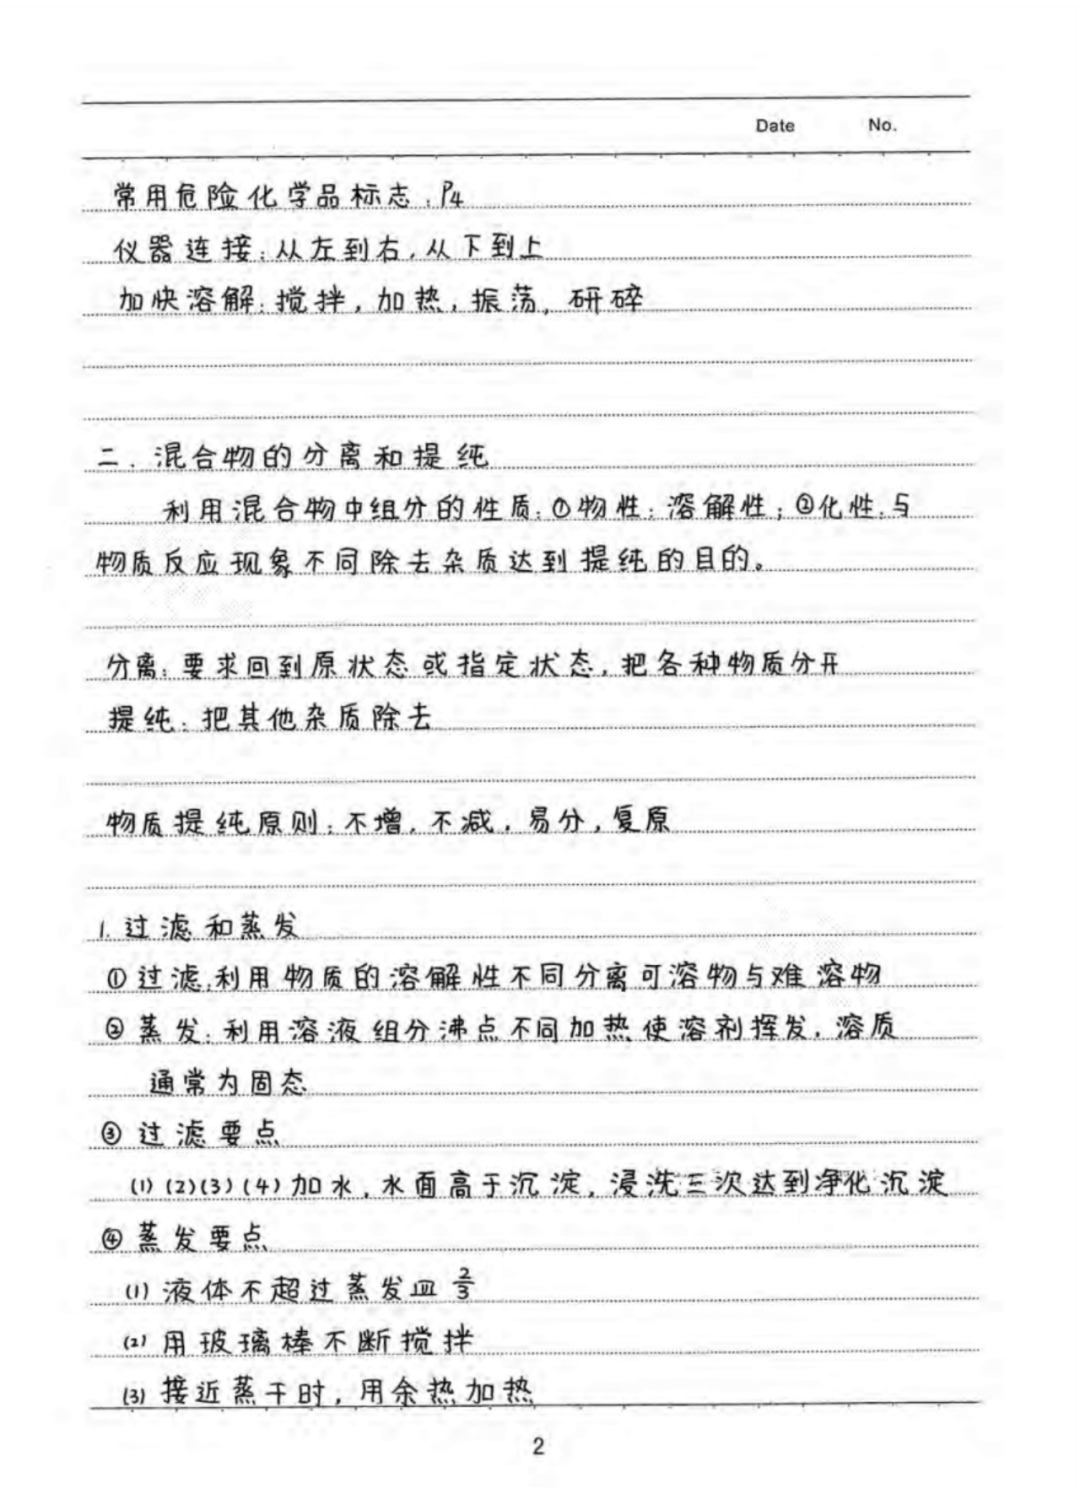 Date No.
常用危险化学品标志:P4
仪器连接:从左到右,从下到上
加快溶解:搅拌,加热,振荡,研碎
二.混合物的分离和提纯
利用混合物中组分的性质:①物性:溶解性;②化性:与
物质反应现象不同除去杂质达到提纯的目的。
分离:要求回到原状态或指定状态,把各种物质分开
提纯:把其他杂质除去
物质提纯原则:不增,不减,易分,复原
1.过滤和蒸发
①过滤:利用物质的溶解性不同分离可溶物与难溶物
②蒸发:利用溶液组分沸点不同加热使溶剂挥发,溶质
通常为固态
③过滤要点
(1)(2)(3)(4)加水,水面高于沉淀,浸洗三次达到净化沉淀
④蒸发要点
(1)液体不超过蒸发皿2/3
(2)用玻璃棒不断搅拌
(3)接近蒸干时,用余热加热
2